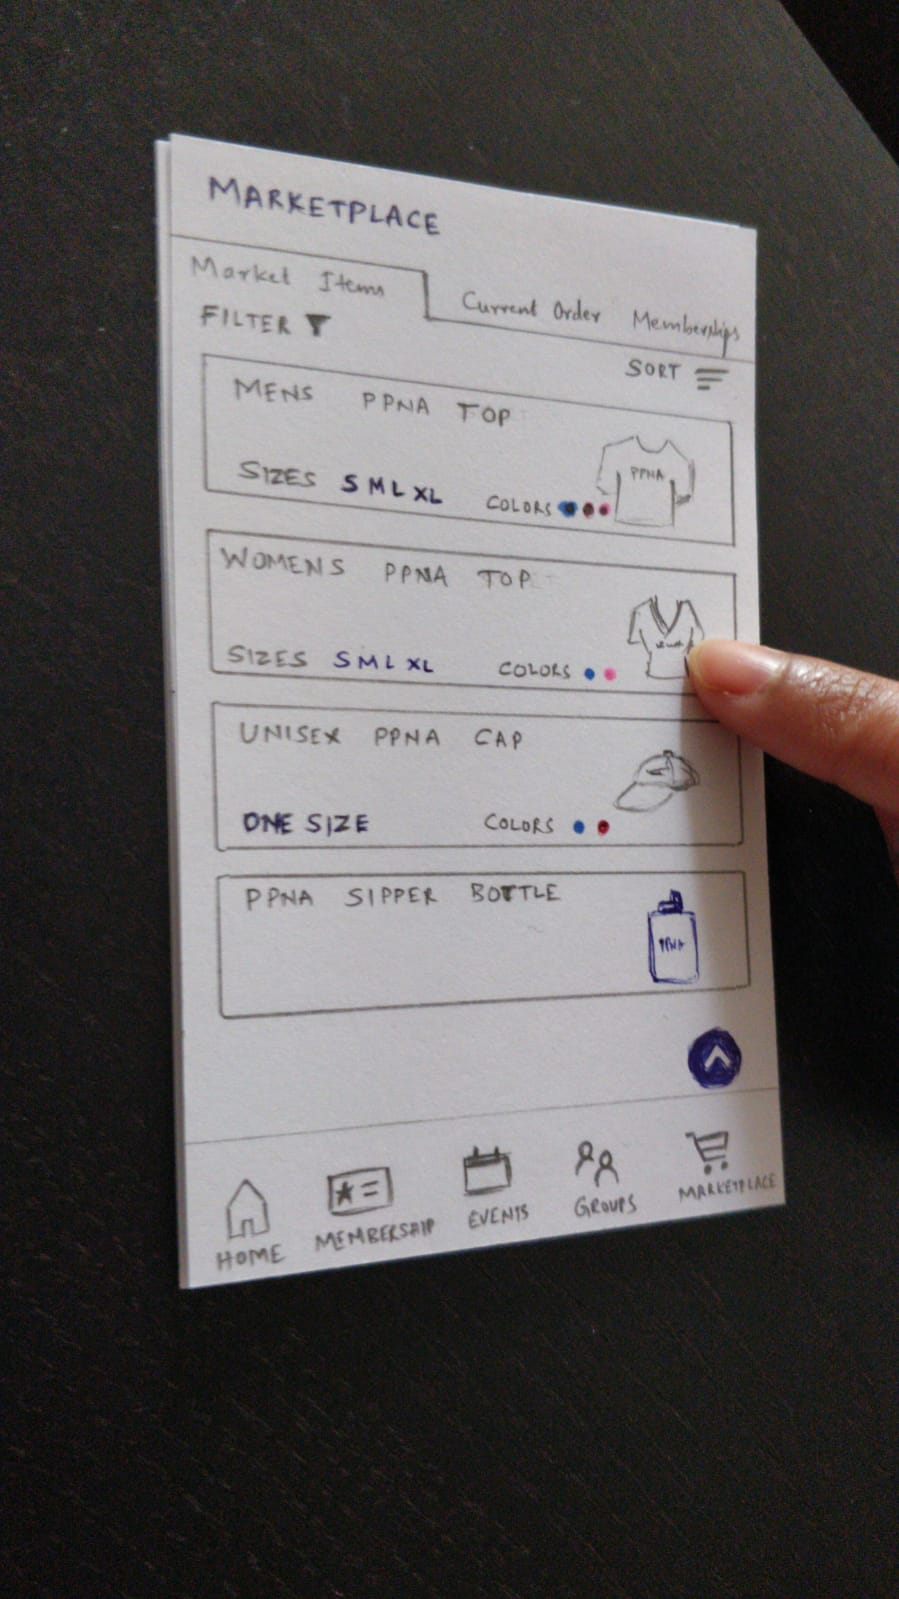 MARKETPLACE
Market Items
Current Order
Memberships
FILTER
SORT
MENS PPNA TOP
PPNA
SIZES S M L XL
COLORS
WOMENS PPNA TOP
SIZES S M L XL
COLORS
UNISEX PPNA CAP
ONE SIZE
COLORS
PPNA SIPPER BOTTLE
PPNA
HOME
MEMBERSHIP
EVENTS
GROUPS
MARKETPLACE